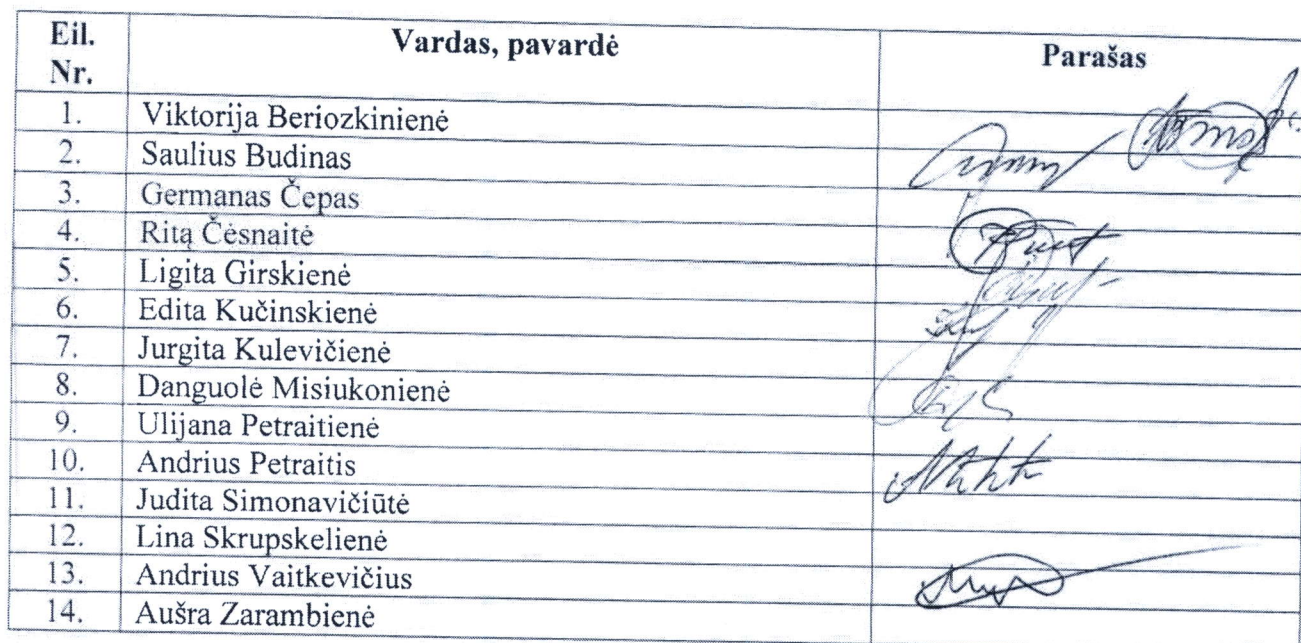 Eil. Nr. Vardas, pavardė Parašas
1. Viktorija Beriozkinienė
2. Saulius Budinas
3. Germanas Čepas
4. Ritą Čėsnaitė
5. Ligita Girskienė
6. Edita Kučinskienė
7. Jurgita Kulevičienė
8. Danguolė Misiukonienė
9. Ulijana Petraitienė
10. Andrius Petraitis
11. Judita Simonavičiūtė
12. Lina Skrupskelienė
13. Andrius Vaitkevičius
14. Aušra Zarambienė